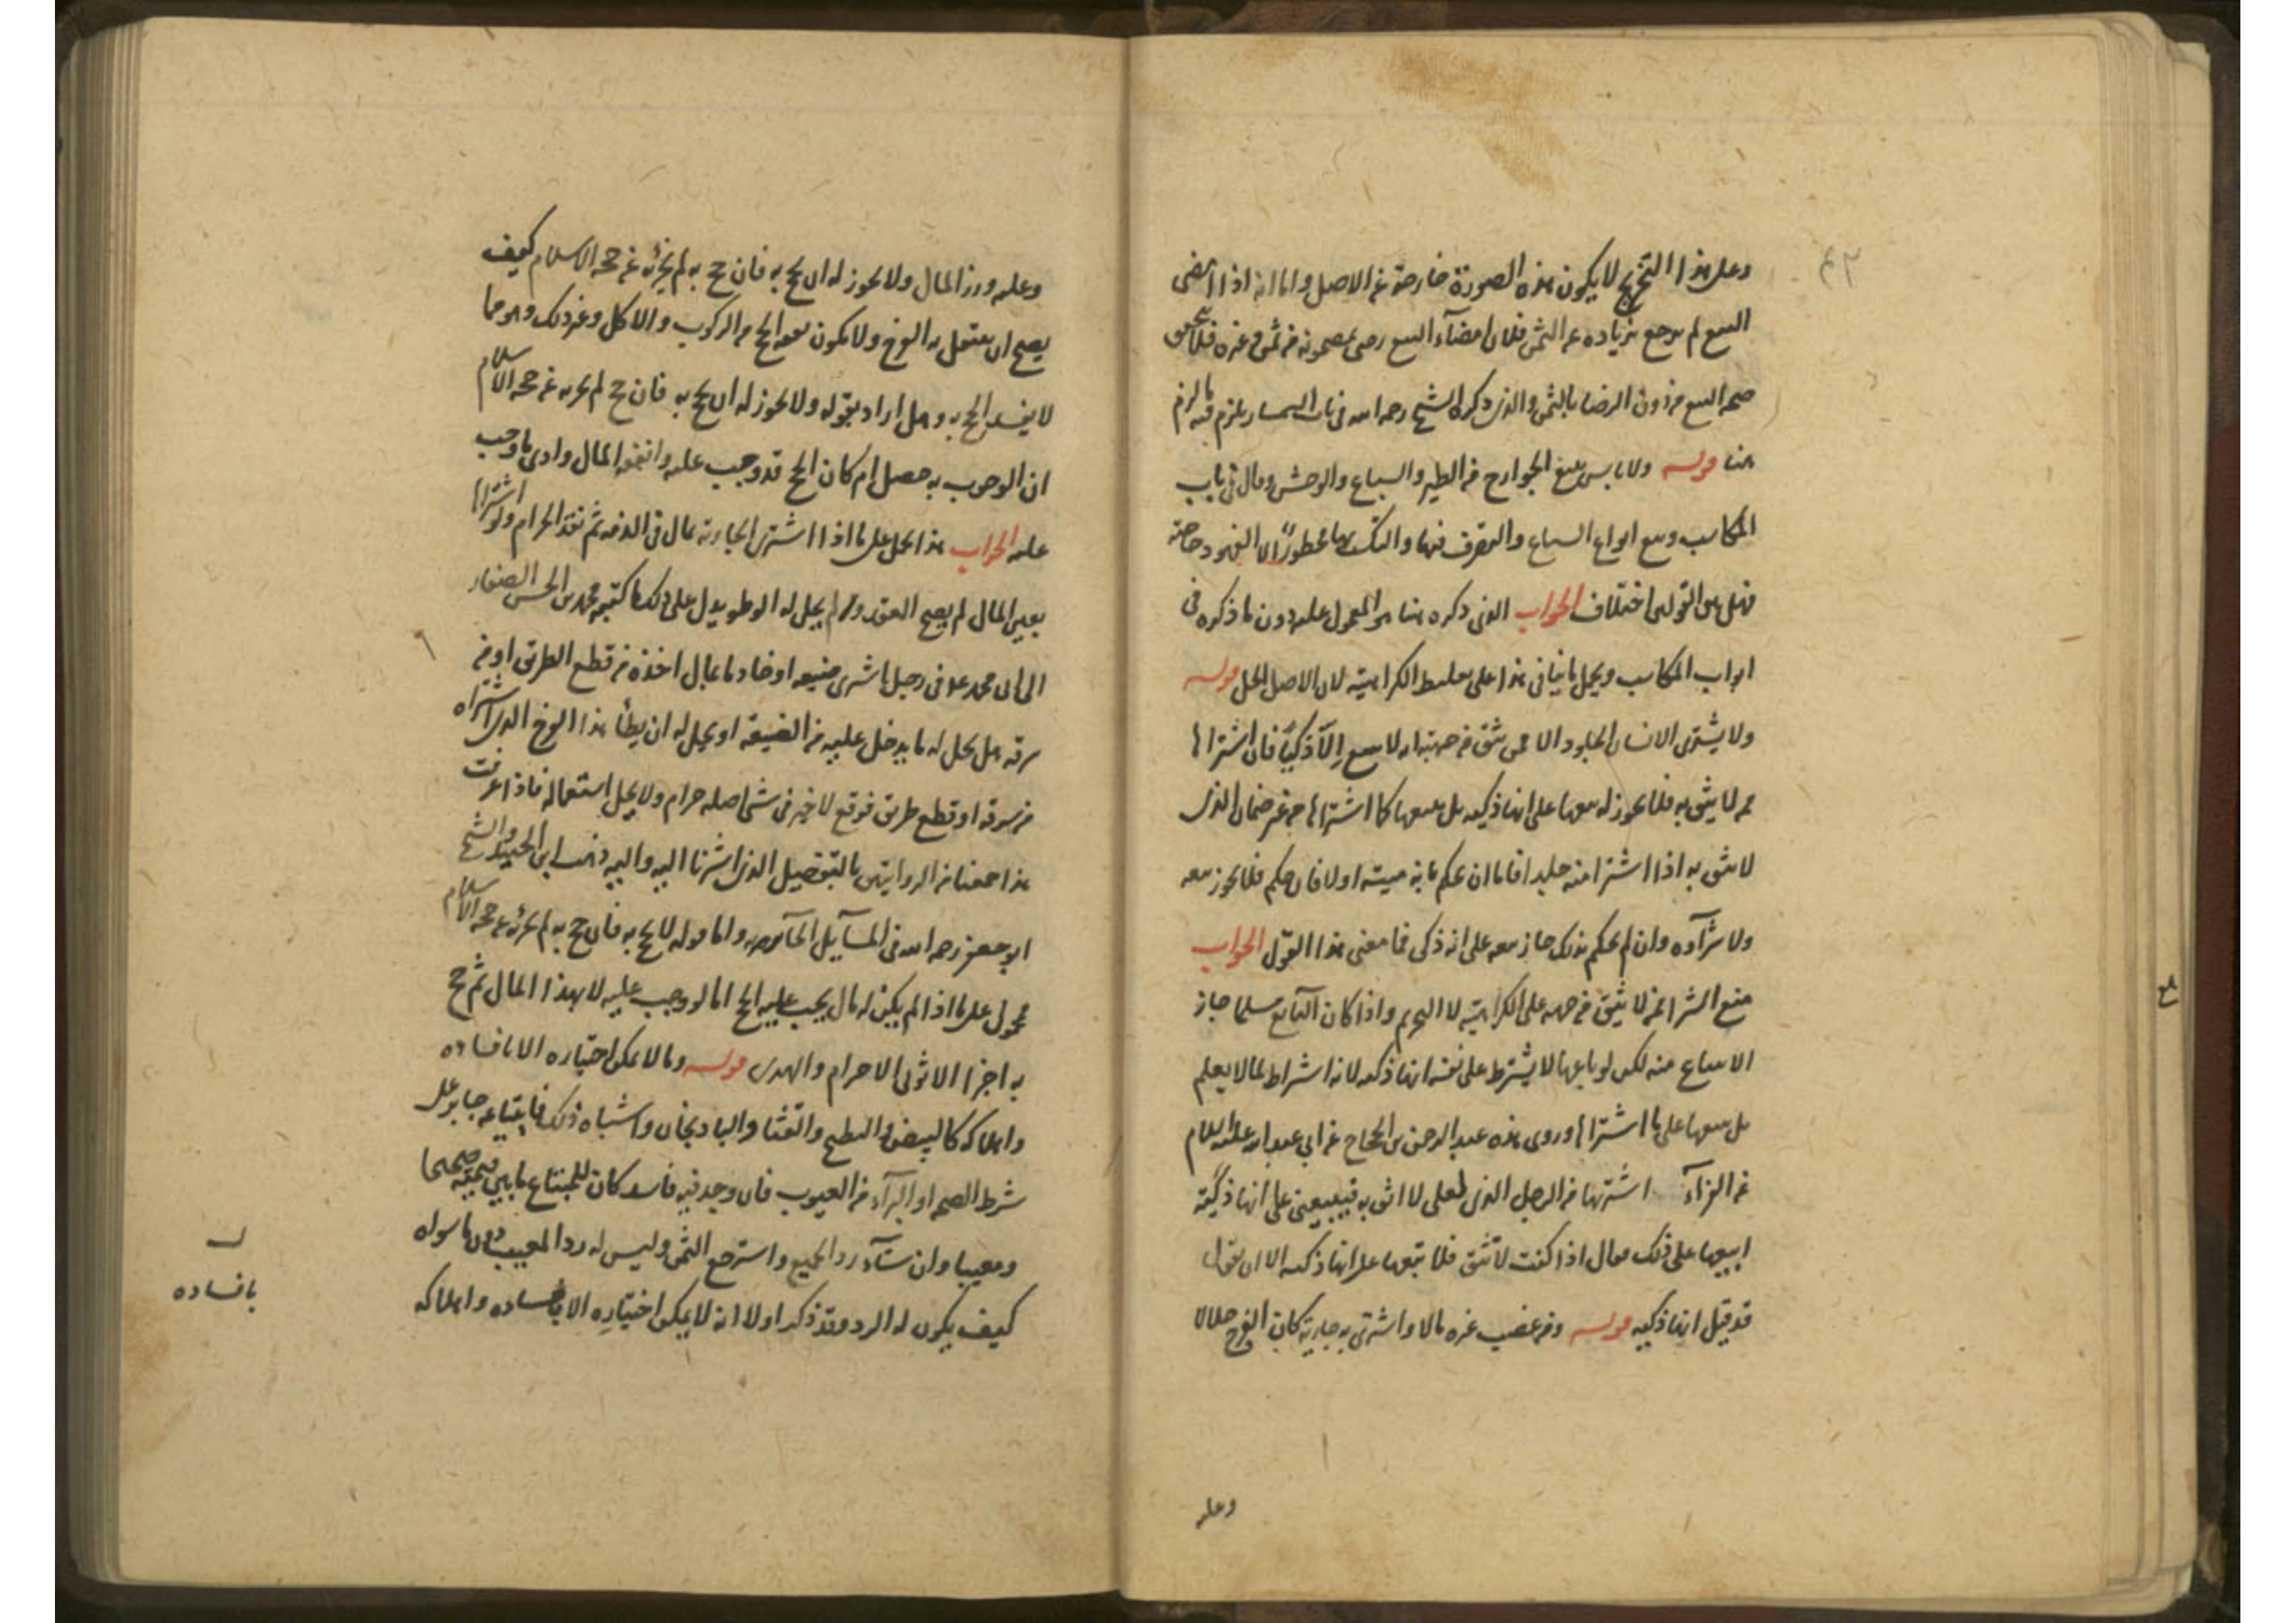 وعلى هذا التخريج لا يكون هذه الصورة خارجة عن الاصل واما انه اذا امضى
البيع لم يرجع بزيادة عن الثمن فلان امضاء البيع رضى بمضمونه من ثمن وغيره فلا يتحقق
صحة البيع من دون الرضا بالثمن والذي ذكره الشيخ رحمه الله في باب السمسار يلزم فيه ما لزم
هنا قوله ولا باس ببيع الجوارح من الطير والسباع والوحش وقال في باب
المكاسب وبيع انواع السباع والتصرف فيها والتكسب بها محظور الا الفهود خاصة
فهل بين القولين اختلاف الجواب الذي ذكره هنا هو المعمول عليه دون ما ذكره في
ابواب المكاسب ويحمل ما ينافي هذا على تغليظ الكراهية لان الاصل الحل قوله
ولا يشترى الانسان الجلود الا ممن يثق من جهته انه لا يبيع الا ذكيا فان اشتراها
ممن لا يثق به فلا يجوز له بيعها على انها ذكية بل يبيعها كما اشتراها من غير ضمان الذي
لا يثق به اذا اشترا منه جلدا فاما ان يحكم بانه ميتة او لا فان حكم فلا يجوز بيعه
ولا شرآوه وان لم يحكم بذلك جاز بيعه على انه ذكي فما معنى هذا القول الجواب
منع الشرا ممن لا يثق من جهته على الكراهية لا التحريم واذا كان البايع مسلما جاز
الابتياع منه لكن لو باعها لا يشترط على نفسه انها ذكية لانه اشراط لما لا يعلم
بل يبيعها على ما اشتراها وروى هذه عبد الرحمن بن الحجاج عن ابي عبد الله عليه السلام
عن الفرآء اشتريها من الرجل الذي لعلي لا اثق به فيبيعني على انها ذكية
ابيعها على ذلك فقال اذا كنت لا تثق فلا تبعها على انها ذكية الا ان تقول
قد قيل انها ذكية قوله ومن غصب غيره مالا واشترى به جارية كان الفرج حلالا
وعليه
وعليه وزر المال ولا يجوز له ان يحج به فان حج به لم يجزئه عن حجة الاسلام كيف
يصح ان ينتقل به الفرج ولا يكون نفقة الحج من الركوب والاكل وغير ذلك وهو مما
لا يفسد الحج به وهل اراد بقوله ولا يجوز له ان يحج به فان حج لم يجزئه عن حجة الاسلام
ان الوجوب به حصل ام كان الحج قد وجب عليه وانفق المال وادى ما وجب
عليه الجواب هذا يحمل على ما اذا اشترى الجارية بمال في الذمة ثم نقد الحرام ولو اشتراها
بعين المال لم يصح العقد ولم يحل له الوطو يدل على ذلك ما كتبه محمد بن الحسن الصفار
الى ابي محمد ع في رجل اشترى ضيعة او خادما بمال اخذه من قطع الطريق او من
سرقه هل يحل له ما يدخل عليه من الضيعة او يحل له ان يطأ هذا الفرج الذي اشتراه
من سرقة او قطع طريق فوقع لا خير في شي اصله حرام ولا يحل استعماله فاذا عرفت
هذا جمعنا بين الروايتين بالتفصيل الذي اشرنا اليه واليه ذهب ابن الجنيد والشيخ
ابو جعفر رحمه الله في المسآيل الحآئرية واما قوله لا يحج به فان حج به لم يجزئه عن حجة الاسلام
محمول على ما اذا لم يكن له مال يجب عليه الحج اما لو وجب عليه لا بهذا المال ثم حج
به اجزا الا ثوبي الاحرام والهدي قوله وما لا يمكن اختباره الا بافساده
واهلاكه كالبيض والبطيخ والقثا والباديجان واشباه ذلك فابتياعه جايز على
شرط الصحة او البرآء من العيوب فان وجد فيه فاسد كان للمبتاع ما بين قيمته صحيحا
ومعيبا وان شآء رد الجميع واسترجع الثمن وليس له رد المعيب دون ما سواه
كيف يكون له الرد وقد ذكر اولا انه لا يمكن اختياره الا بافساده واهلاكه
بافساده